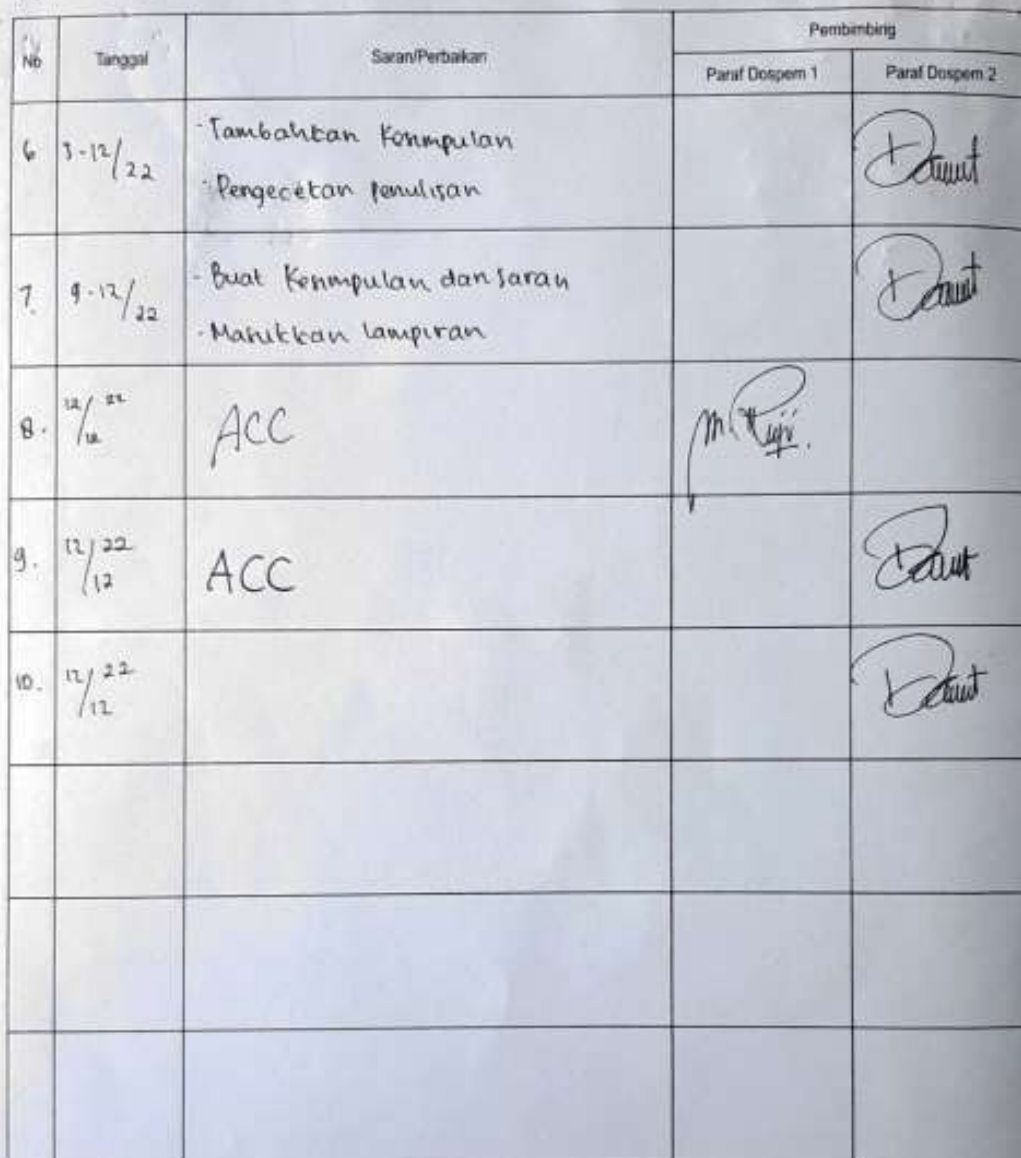 No
Tanggal
Saran/Perbaikan
Pembimbing
Paraf Dospem 1
Paraf Dospem 2
6 3-12/22
- Tambahkan Kesimpulan
- Pengecekan Penulisan
7. 9-12/22
- Buat Kesimpulan dan saran
- Masukkan lampiran
8. 12/12 22 ACC
9. 12/12 22 ACC
10. 12/12 22